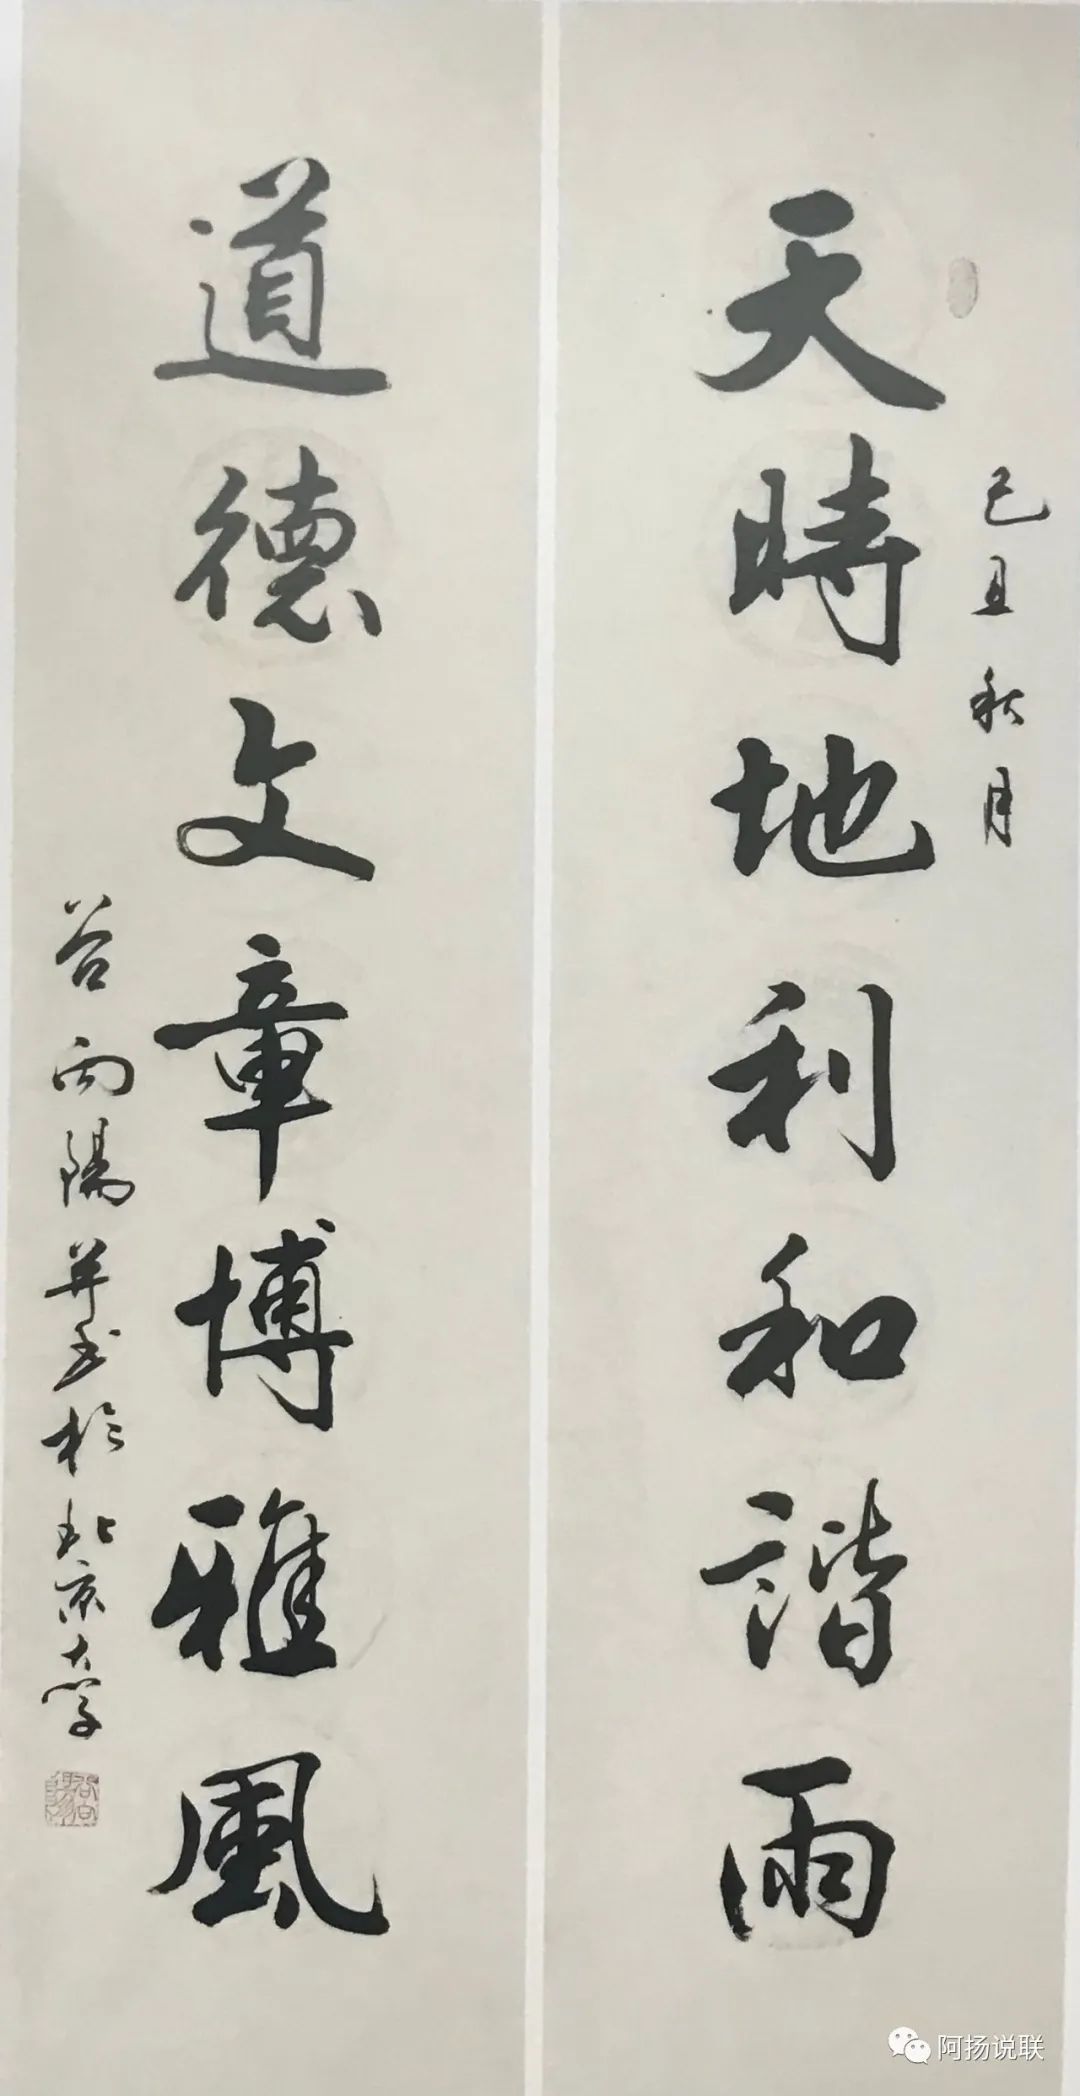 己丑秋月
天時地利和諧雨
道德文章博雅風
谷向陽并書於北京大学
谷向陽
阿扬说联